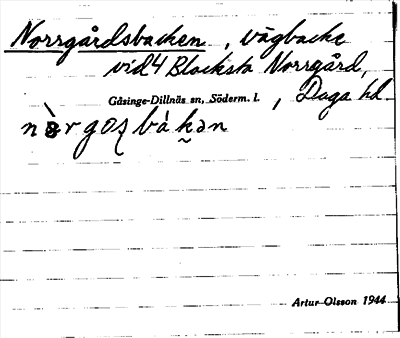 Norrgårdsbacken, vägbacke
vid 4 Blacksta Norrgård,
Gåsinge-Dillnäs sn, Söderm. l., Daga hd
Artur Olsson 1944